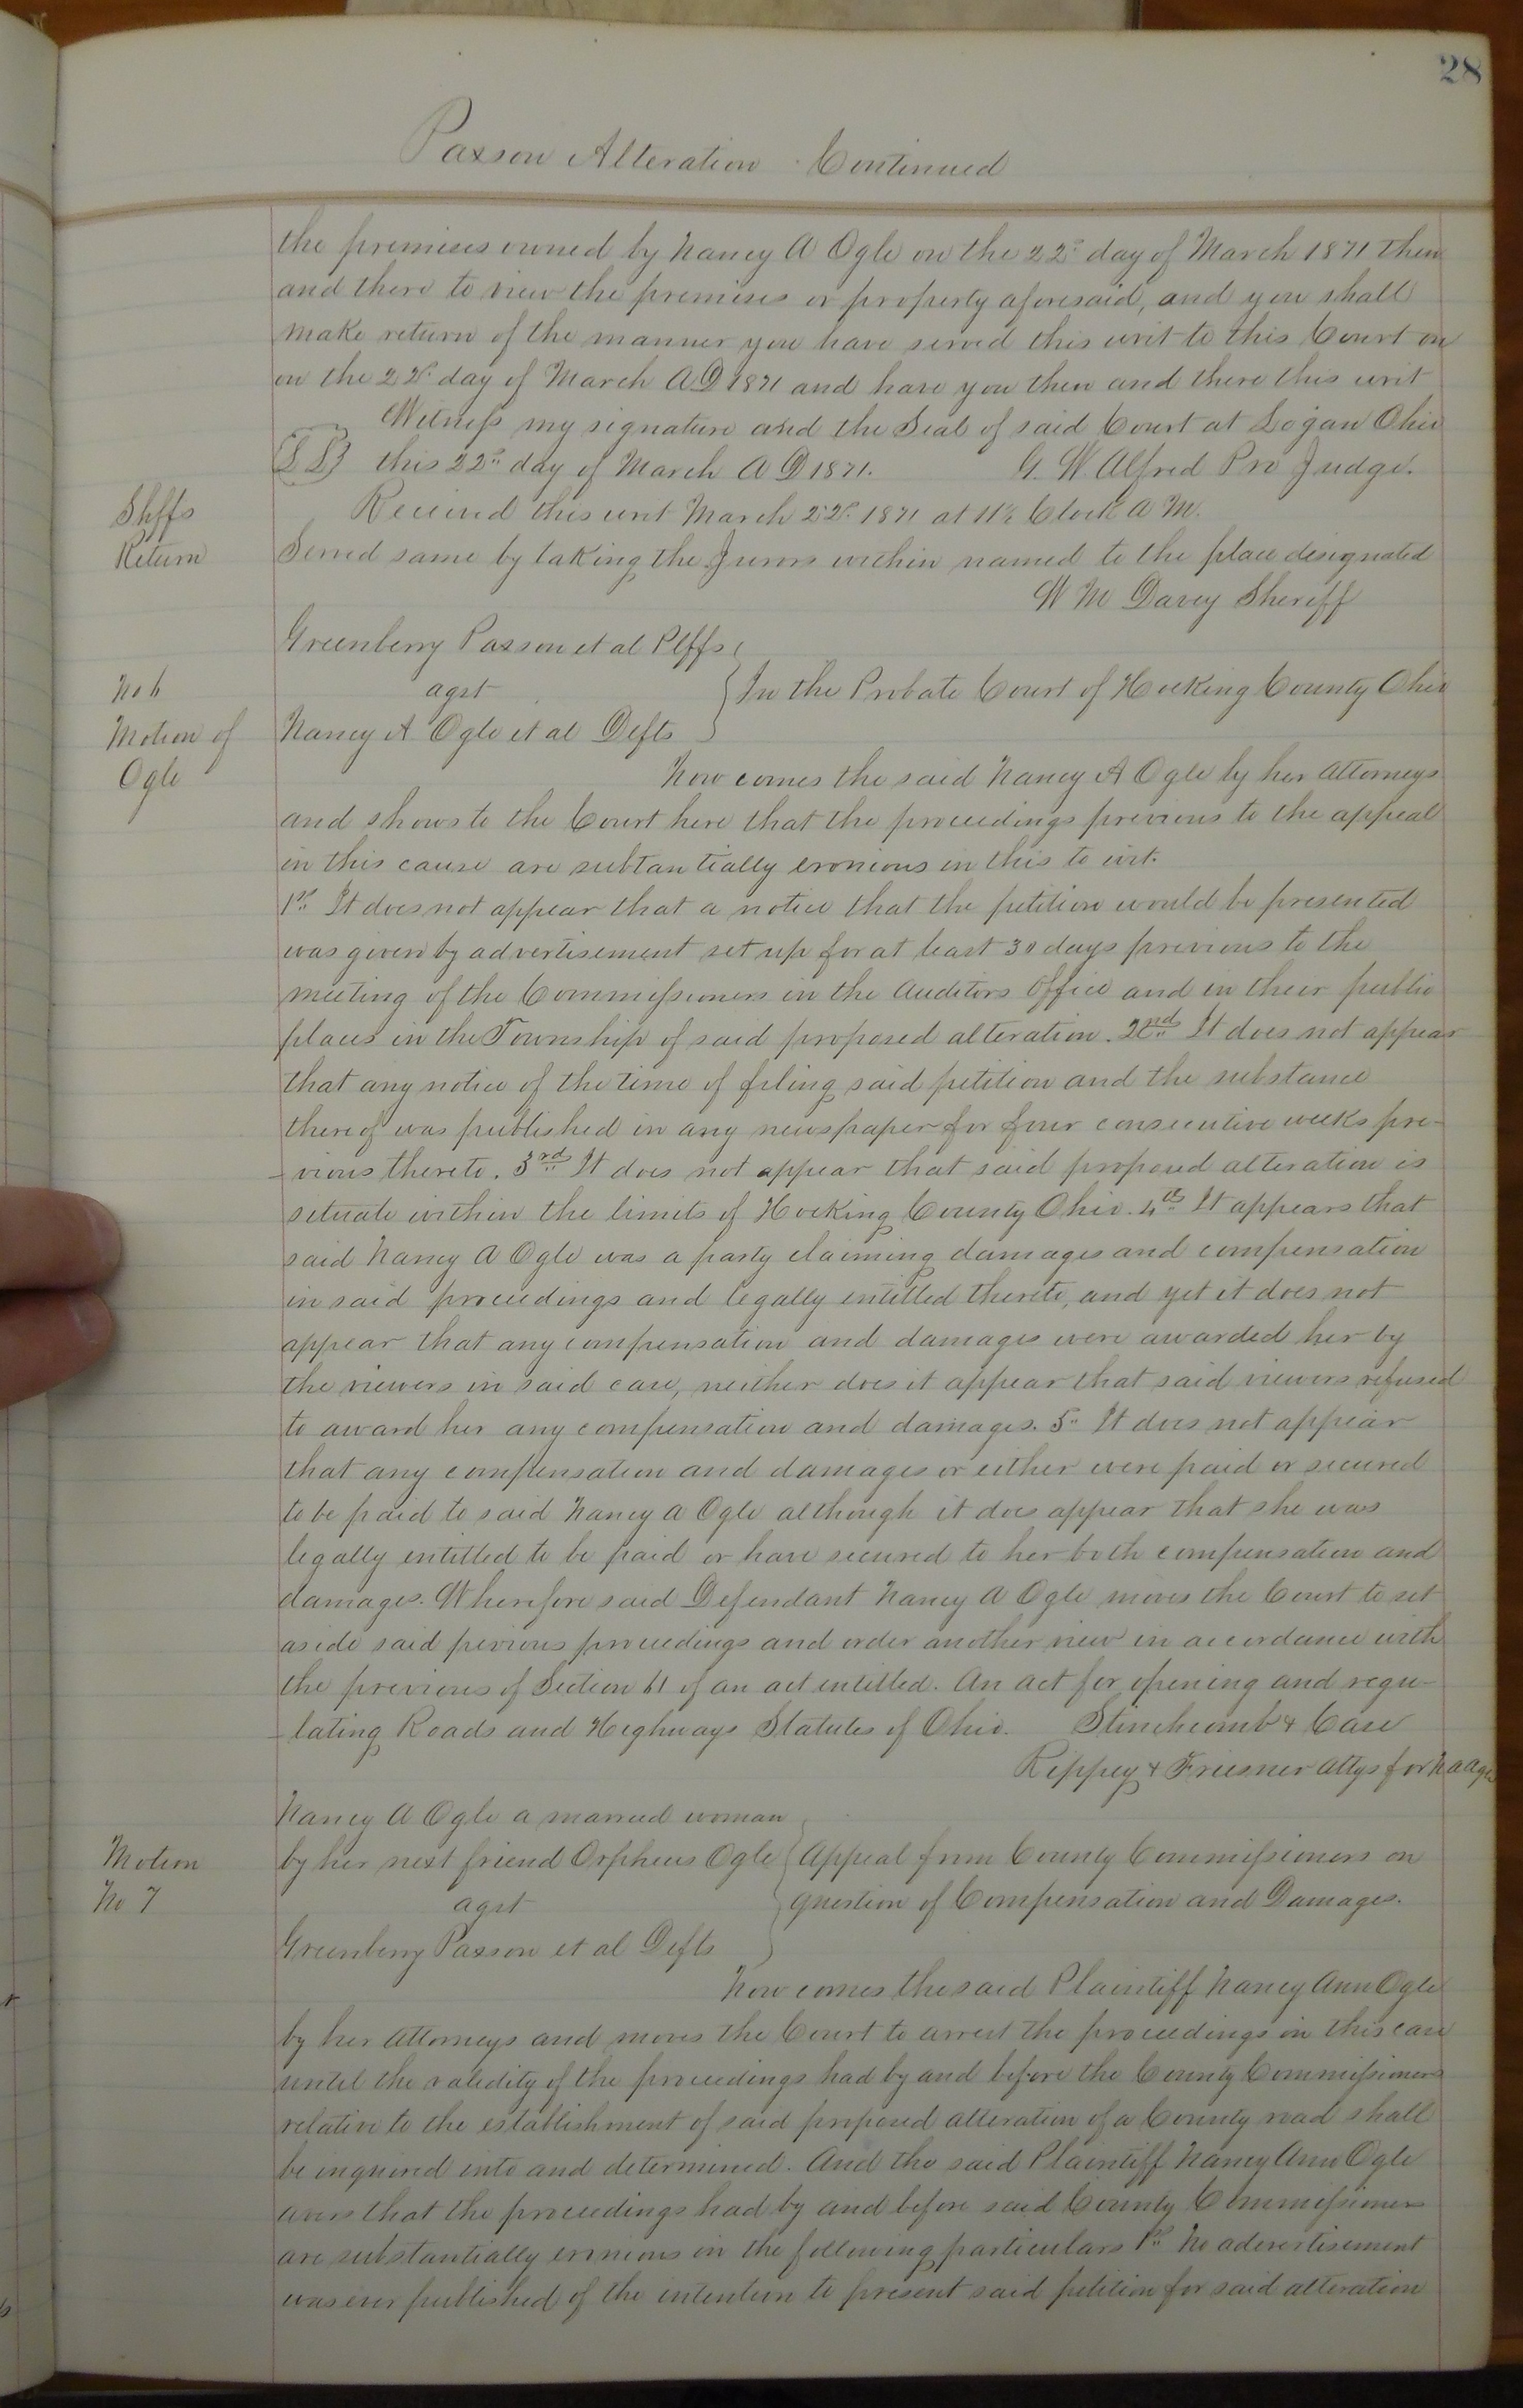 28
Paxson Alteration Continued
the premises owned by Nancy A Ogle on the 22d day of March 1871 then
and there to view the premises or property aforesaid, and you shall
make return of the manner you have served this writ to this Court on
on the 22d day of March A D 1871 and have you then and there this writ
Witness my signature and the Seal of said Court at Logan Ohio
this 22d day of March A D 1871. G. W. Alfred Pro Judge.
Shffs
Return
Received this writ March 22d 1871 at 11 o Clock A M.
Served same by taking the Jurors within named to the place designated
W M Davey Sheriff
Greenberry Paxson et al Plffs
No 6
Motion of
Ogle
agst In the Probate Court of Hocking County Ohio
Nancy A Ogle et al Defts
Now comes the said Nancy A Ogle by her Attorneys
and shows to the Court here that the proceedings previous to the appeal
in this cause are subtantially eronious in this to wit.
1st It does not appear that a notice that the petition would be presented
was given by advertisement set up for at least 30 days previous to the
meeting of the Commissioners in the Auditors Office and in their public
places in the Township of said proposed alteration. 2nd It does not appear
that any notice of the time of filing said petition and the substance
thereof was published in any newspaper for four consecutive weeks pre-
-vious thereto. 3rd It does not appear that said proposed alteration is
situate within the limits of Hocking County Ohio. 4th It appears that
said Nancy A Ogle was a party claiming damages and compensation
in said proceedings and legally entitled thereto, and yet it does not
appear that any compensation and damages were awarded her by
the viewers in said case, neither does it appear that said viewers refused
to award her any compensation and damages. 5" It does not appear
that any compensation and damages or either were paid or secured
to be paid to said Nancy A Ogle although it does appear that she was
legally entitled to be paid or have secured to her both compensation and
damages. Wherefore said Defendant Nancy A Ogle moves the Court to set
aside said pervious proceedings and order another view in accordance with
the previous of Section 61 of an act entitled. An act for opening and regu-
-lating Roads and Highways Statutes of Ohio. Stinchcomb & Case
Rippey & Friesner Attys for
Nancy A Ogle a married woman
Motion
No 7
by her next friend Orpheus Ogle Appeal from County Commissioners on
agst question of Compensation and Damages.
Greenberry Paxson et al Defts
Now comes the said Plaintiff Nancy Ann Ogle
by her Attorneys and moves the Court to arrest the proceedings in this case
until the validity of the proceedings had by and before the County Commissioners
relative to the establishment of said proposed alteration of a County road shall
be inquired into and determined. And the said Plaintiff Nancy Ann Ogle
avers that the proceedings had by and before said County Commissioners
are substantially eronious in the following particulars 1st No adevertisement
was ever published of the intention to present said petition for said alteration